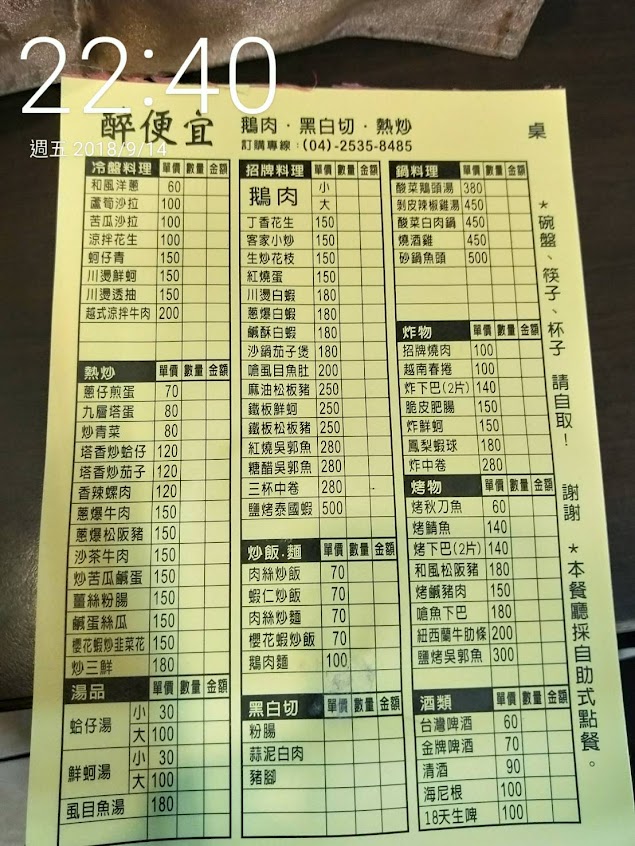 22:40
週五 2018/9/14
醉便宜 鵝肉·黑白切·熱炒 桌
訂購專線:(04)-2535-8485
冷盤料理 單價 數量 金額
和風洋蔥 60
蘆筍沙拉 100
苦瓜沙拉 100
涼拌花生 100
蚵仔青 150
川燙鮮蚵 150
川燙透抽 150
越式涼拌牛肉 200
熱炒 單價 數量 金額
蔥仔煎蛋 70
九層塔蛋 80
炒青菜 80
塔香炒蛤仔 120
塔香炒茄子 120
香辣螺肉 120
蔥爆牛肉 150
蔥爆松阪豬 150
沙茶牛肉 150
炒苦瓜鹹蛋 150
薑絲粉腸 150
鹹蛋絲瓜 150
櫻花蝦炒韭菜花 150
炒三鮮 180
湯品 單價 數量 金額
蛤仔湯 小 30
大 100
鮮蚵湯 小 30
大 100
虱目魚湯 180
招牌料理 單價 數量 金額
鵝肉 小
大
丁香花生 150
客家小炒 150
生炒花枝 150
紅燒蛋 150
川燙白蝦 180
蔥爆白蝦 180
鹹酥白蝦 180
沙鍋茄子煲 180
嗆虱目魚肚 200
麻油松板豬 250
鐵板鮮蚵 250
鐵板松板豬 250
紅燒吳郭魚 280
糖醋吳郭魚 280
三杯中卷 280
鹽烤泰國蝦 500
炒飯.麵 單價 數量 金額
肉絲炒飯 70
蝦仁炒飯 70
肉絲炒麵 70
櫻花蝦炒飯 70
鵝肉麵 100
黑白切 單價 數量 金額
粉腸
蒜泥白肉
豬腳
鍋料理 單價 數量 金額
酸菜鵝頭湯 380
剝皮辣椒雞湯 450
酸菜白肉鍋 450
燒酒雞 450
砂鍋魚頭 500
炸物 單價 數量 金額
招牌燒肉 100
越南春捲 100
炸下巴(2片) 140
脆皮肥腸 150
炸鮮蚵 150
鳳梨蝦球 180
炸中卷 280
烤物 單價 數量 金額
烤秋刀魚 60
烤鯖魚 140
烤下巴(2片) 140
和風松阪豬 180
烤鹹豬肉 150
嗆魚下巴 180
紐西蘭牛肋條 200
鹽烤吳郭魚 300
酒類 單價 數量 金額
台灣啤酒 60
金牌啤酒 70
清酒 90
海尼根 100
18天生啤 100
*碗盤、筷子、杯子 請自取! 謝謝 *本餐廳採自助式點餐。